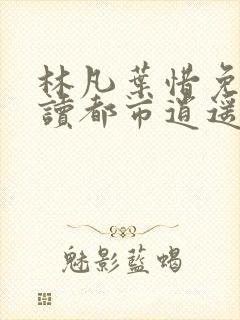 林凡葉惜免
讀都市逍遥
魅影藍蝎